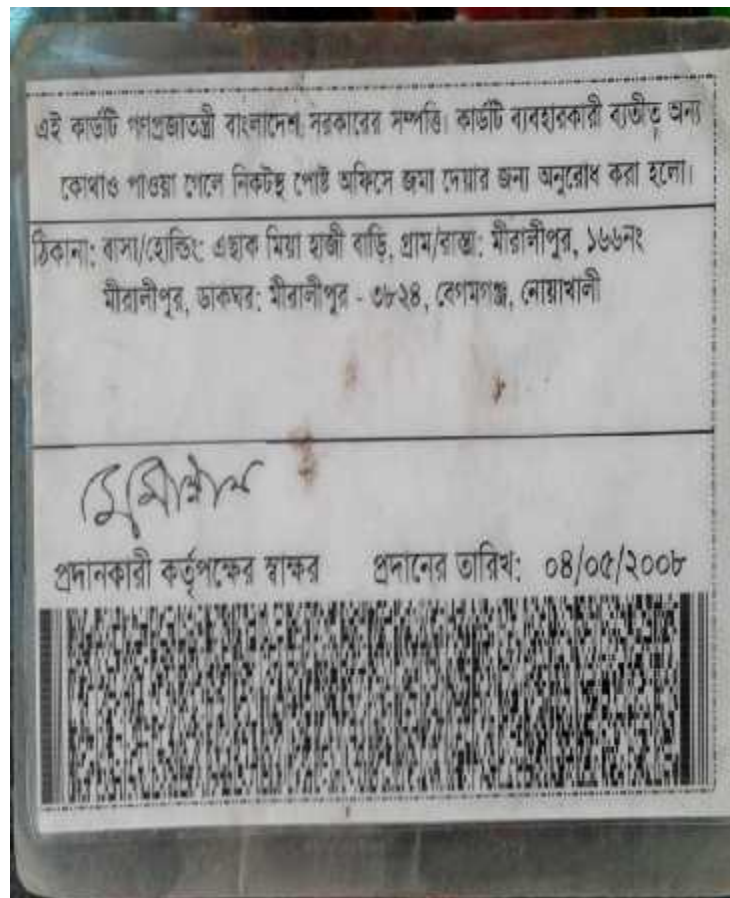 এই কার্ডটি গণপ্রজাতন্ত্রী বাংলাদেশ সরকারের সম্পত্তি। কার্ডটি ব্যবহারকারী ব্যতীত অন্য
কোথাও পাওয়া গেলে নিকটস্থ পোষ্ট অফিসে জমা দেয়ার জন্য অনুরোধ করা হলো।
ঠিকানা: বাসা/হোল্ডিং: এছাক মিয়া হাজী বাড়ি, গ্রাম/রাস্তা: মীরালীপুর, ১৬৬নং
মীরালীপুর, ডাকঘর: মীরালীপুর - ৩৮২৪, বেগমগঞ্জ, নোয়াখালী
প্রদানকারী কর্তৃপক্ষের স্বাক্ষর প্রদানের তারিখ: ০৪/০৫/২০০৮